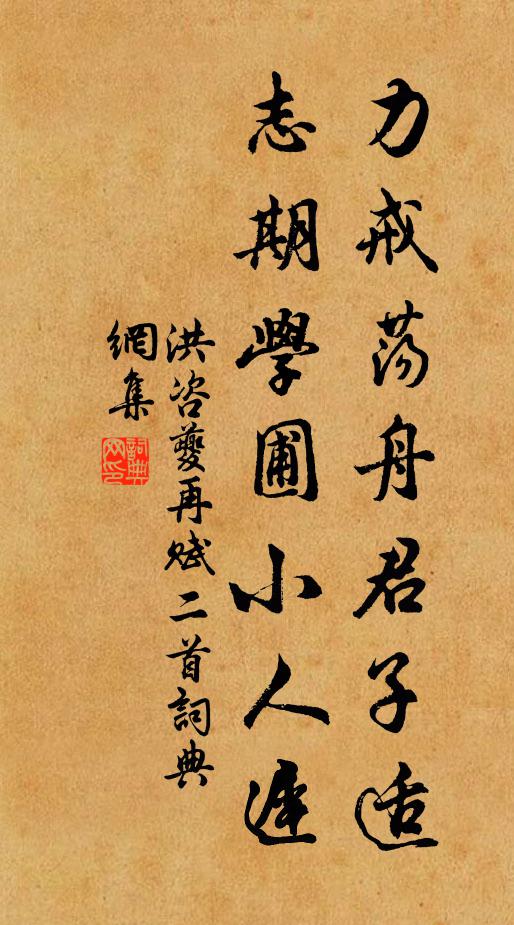 力戒荡舟君子适
志期學圃小人遲
洪咨夔再赋二首詞典
網集
詞典
网印